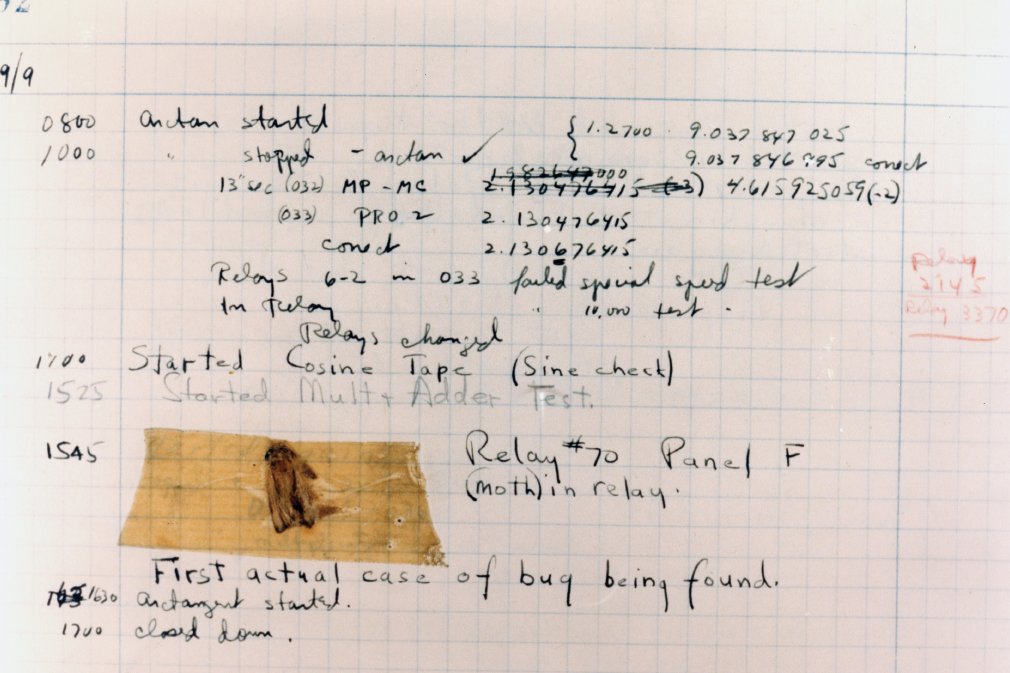 92
9/9
0800 antan started { 1.2700 · 9.037 847 025
1000 " stopped - antan ✓ 9.037 846 995 conect
13" sec (032) MP - MC 2.130476415 (-3) 4.615925059(-2)
(033) PRO 2 2.130476415
conect 2.130676415
Relays 6-2 in 033 failed special speed test
In Relay " 10,000 test .
Relays changed
Relay
2145
Relay 3370
1700 Started Cosine Tape (Sine check)
1525 Started Mult + Adder Test.
1545 Relay #70 Panel F
(moth) in relay.
First actual case of bug being found.
1630 arctangent started.
1700 closed down.